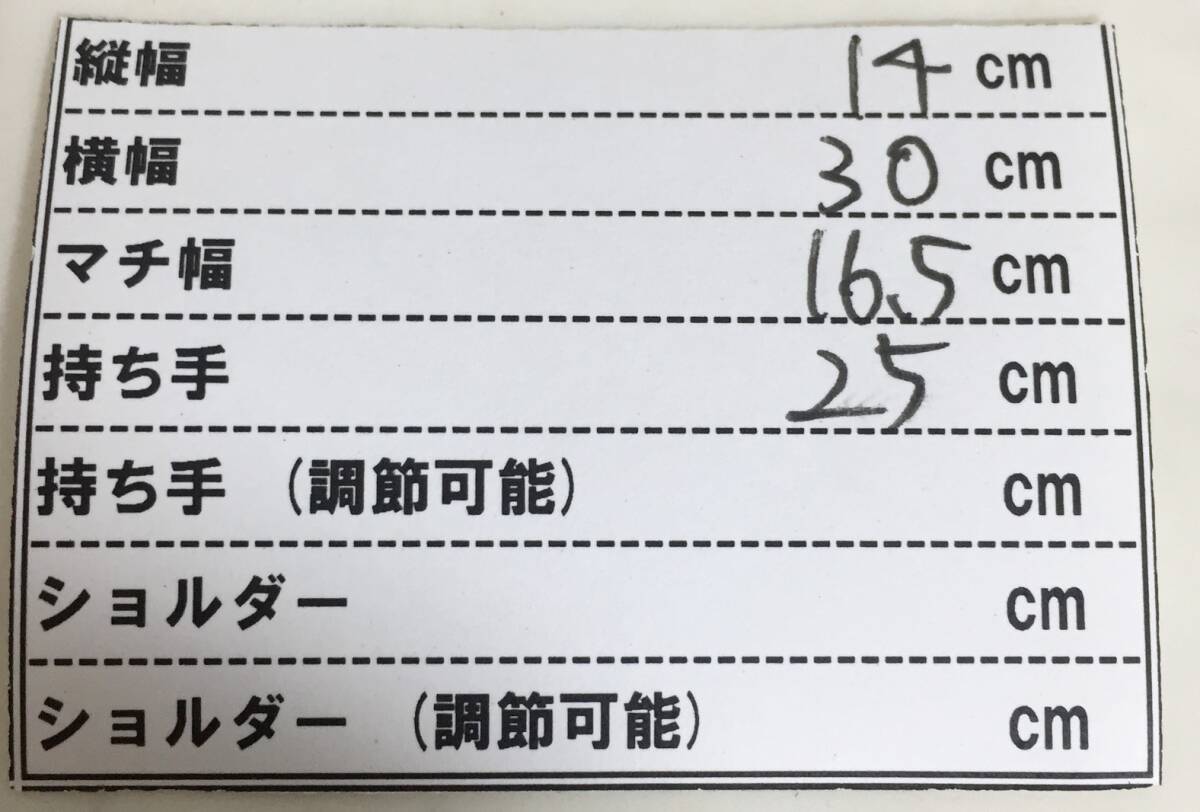 縦幅 14 cm
横幅 30 cm
マチ幅 16.5 cm
持ち手 25 cm
持ち手 (調節可能) cm
ショルダー cm
ショルダー (調節可能) cm